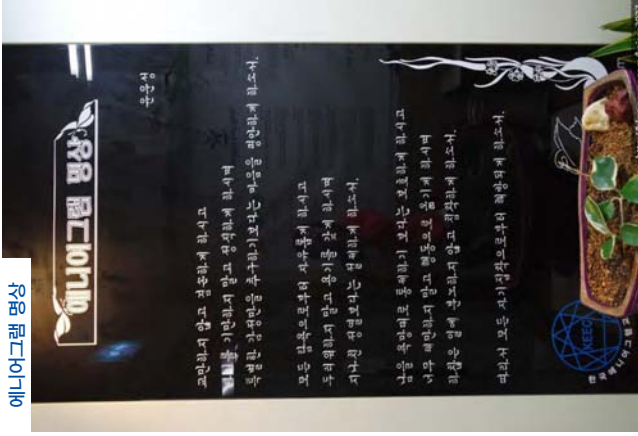 에니어그램 명상
에니어그램 명상
윤운성
교만하지 않고 겸손하게 하시고
기만하지 말고 정직하게 하시며
특별한 감정만을 추구하기보다는 마음을 평안하게 하소서.
모든 탐욕으로부터 자유롭게 하시고
두려워하지 말고 용기를 갖게 하시며
지나친 쾌락보다는 절제하게 하소서.
남을 욕망대로 통제하기 보다는 보호하게 하시고
너무 태만하지 말고 행동으로 옮기게 하시며
하찮은 일에 분노하지 않고 침착하게 하소서.
따라서 모든 자기집착으로부터 해방되게 하소서.
KEEC
한국에니어그램교